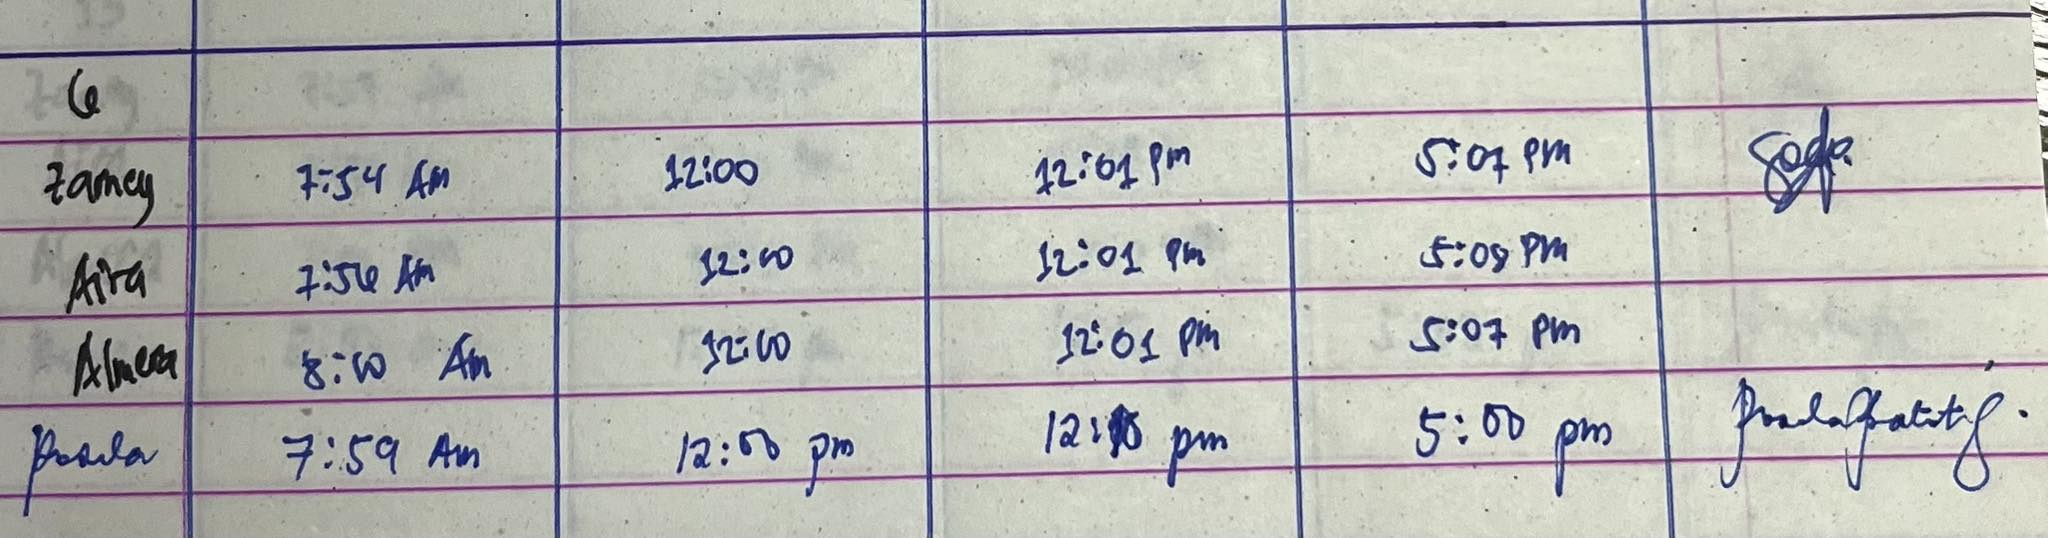 6
Zamey 7:54 Am 12:00 12:01 pm 5:07 pm
Aira 7:56 Am 12:00 12:01 pm 5:08 pm
Almera 8:00 Am 12:00 12:01 pm 5:07 pm
7:59 Am 12:00 pm pm 5:00 pm